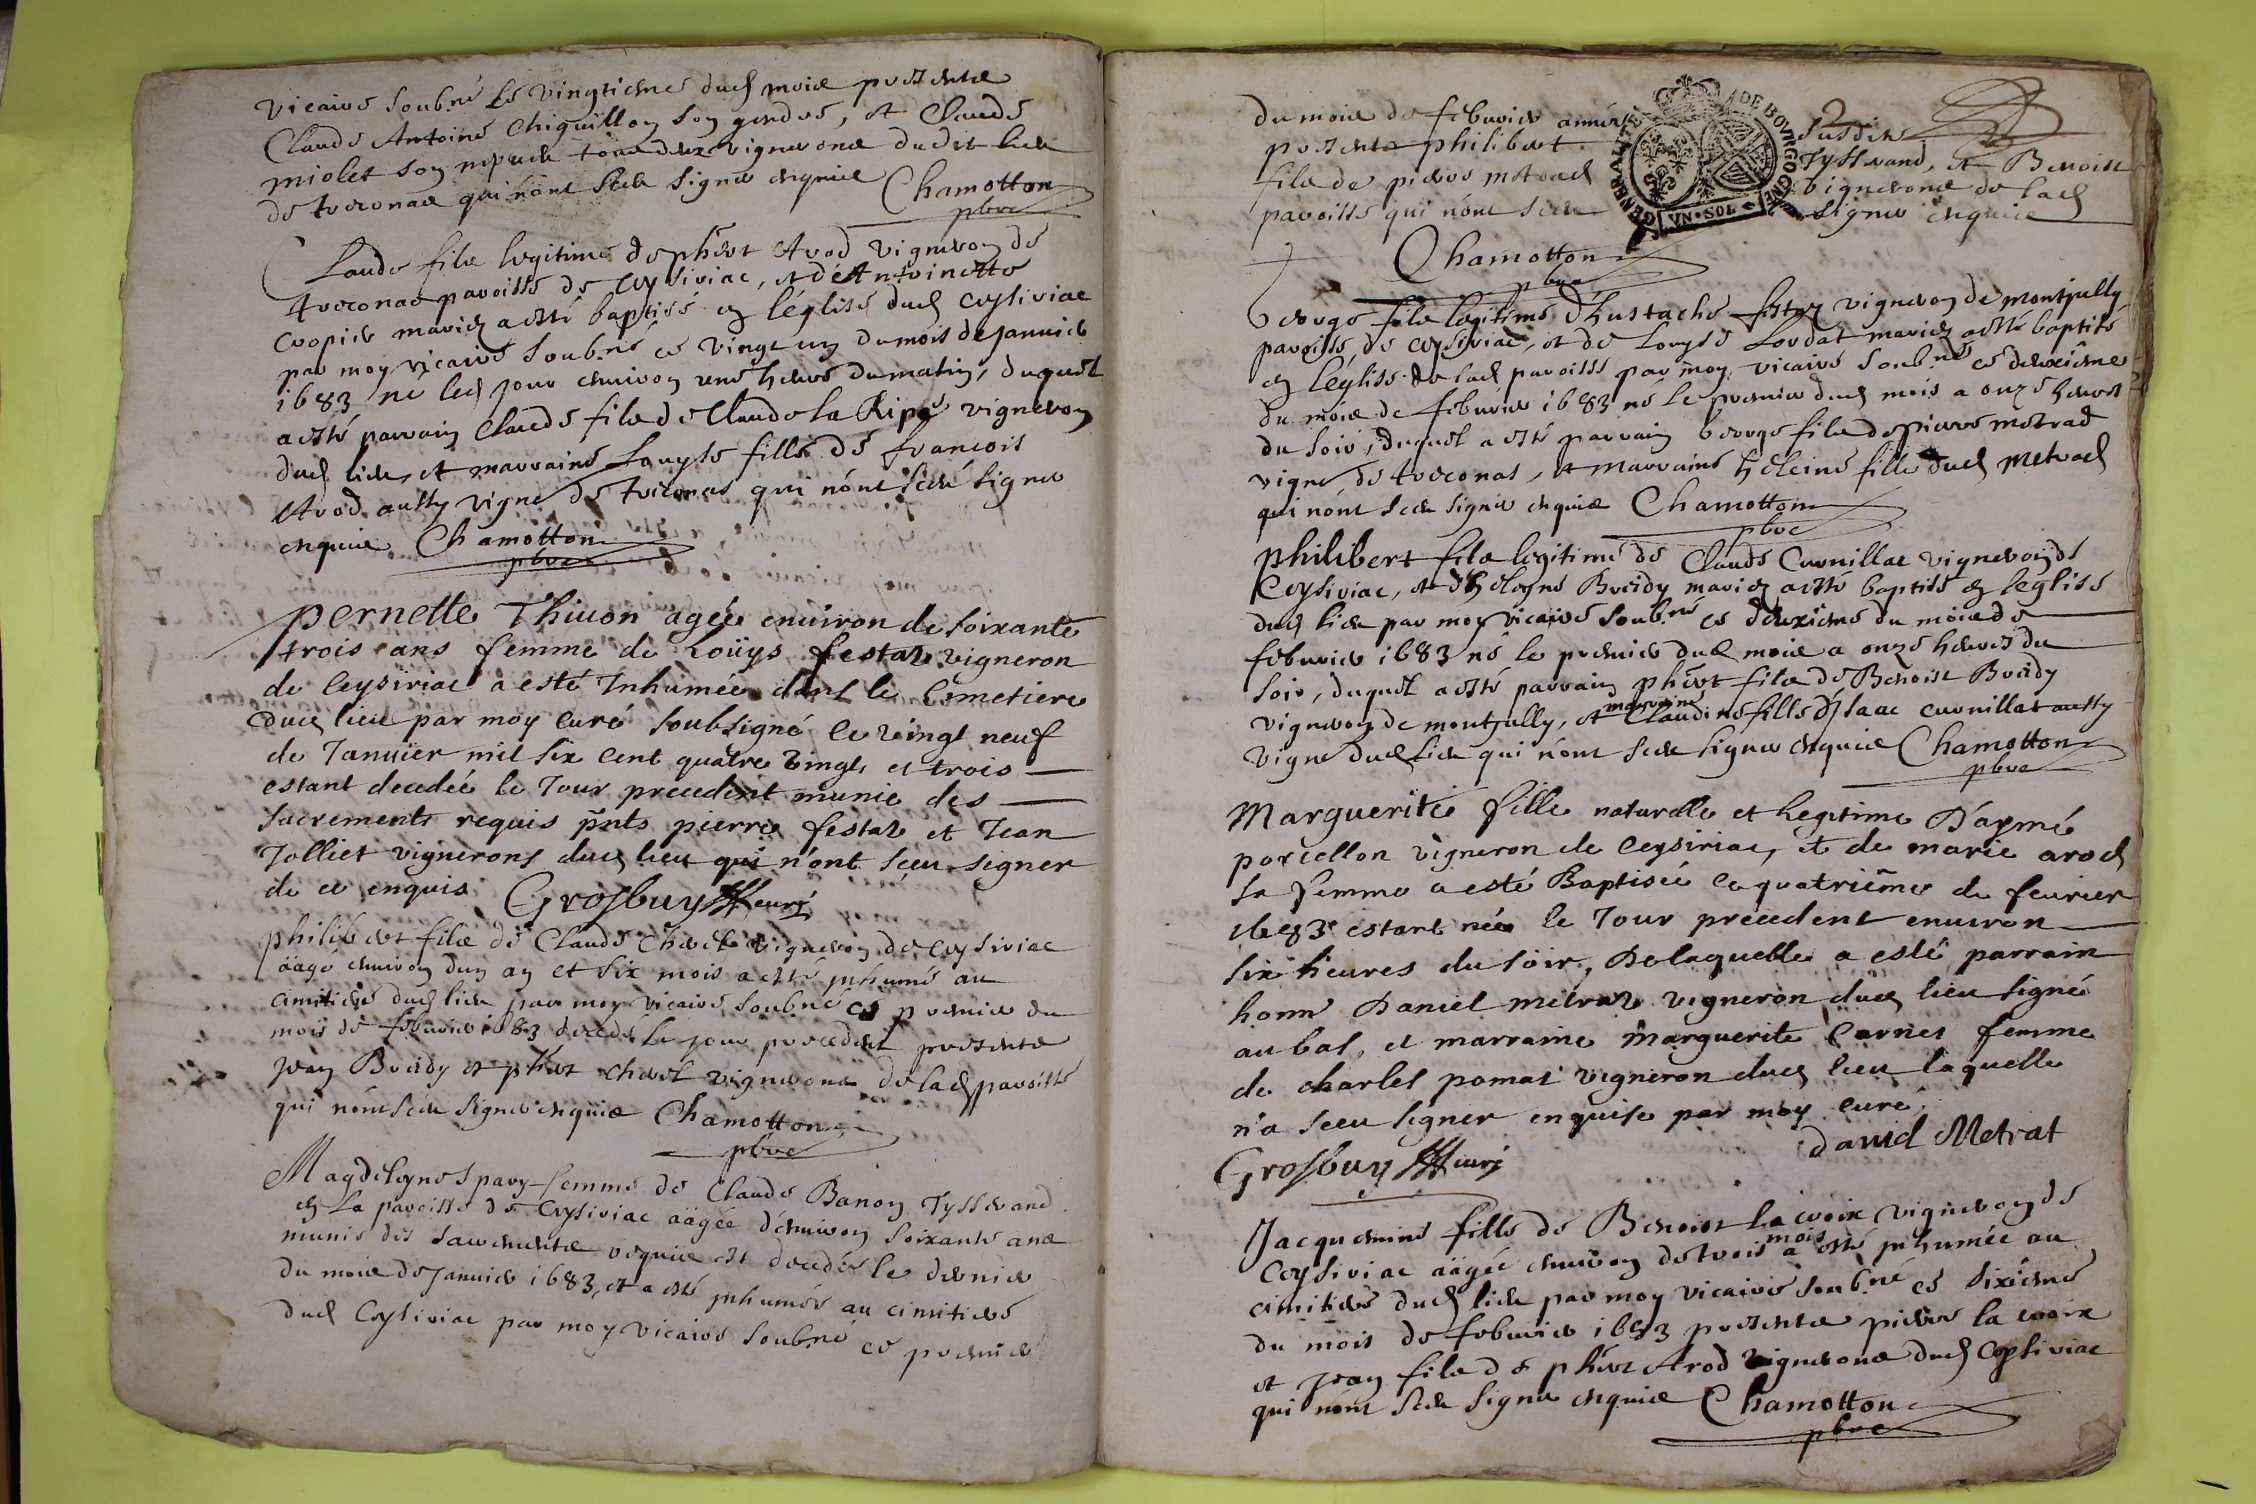 vicaire soub.né le vingtiesme dud mois presents
Claude Antoine Chiquillon son gendre, et Claude
miolet son nepueu tous deux vignerons dudit lieu
de treconas qui n'ont sceu signer enquis Chamotton
pbre
Claude fils legitime de phert Arod vigneron de
treconas paroisse de Ceysiriac, et de Antoinette
Cropier mariez a esté baptisé en l'église dud Ceysiriac
par moy vicaire soub.né ce vingt un du mois de Januier
1683 né led jour enuiron une heure du matin, duquel
a esté parrain Claude fils de Claude la Ripe vigneron
dud lieu, et marraine Louyse fille de francois
Arod aussy vigne. de treconas qui n'ont sceu signer
enquis Chamotton
pbre
Pernette Thiuon agée enuiron de soixante
trois ans femme de Loüys festaz vigneron
de Ceysiriac a esté Inhumée dans le Cimetiere
dud lieu par moy curé soubsigné le vingt neuf
de Januier mil six cent quatre vingts et trois
estant decedée le Jour precedent munie des
sacrements requis pnts pierre festaz et Jean
Jolliet vignerons dud lieu qui n'ont sceu signer
de ce enquis Grosbuy curé
philibert fils de Claude Chevel vigneron de Ceysiriac
äagé enuiron d'un an et six mois a esté inhumé au
cimitiere dud lieu par moy vicaire soub.né ce premier du
mois de feburier 1683 decedé le jour precedent presents
jean Breidy et phert chevel vignerons de lad paroisse
qui n'ont sceu signer enquis Chamotton
pbre
Magdeleyne Spary femme de Claude Banon Tysserand
en la paroisse de Ceysiriac äagée d'enuiron soixante ans
munie des sacrements requis est decedée le dernier
du mois de Januier 1683, et a esté inhumée au cimitiere
dud Ceysiriac par moy vicaire soub.né ce premier
du mois de feburier année susdite
presents philibert Tysserand, et Benoist
fils de pierre metrad vignerons de lad
paroisse qui n'ont sceu signer enquis
GENERALITE DE BOVRGOGNE
VN·SOL
Chamotton
pbre
George fils legitime d'Eustache festaz vigneron de montjully
paroisse de Ceysiriac, et de Louyse Lordat mariez a esté baptisé
en l'église de lad paroisse par moy vicaire soub.né ce deuxiesme
du mois de febvrier 1683 né le premier dud mois a onze heures
du soir, duquel a esté parrain George fils de pierre metrad
vigne. de treconas, et marraine heleine fille dud metrad
qui n'ont sceu signer enquis Chamotton
pbre
philibert fils legitime de Claude Curnillat vigneron de
Ceysiriac, et d'heleyne Breidy mariez a esté baptisé en l'eglise
dud lieu par moy vicaire soub.né ce deuxiesme du mois de
feburier 1683 né le premier dud mois a onze heures du
soir, duquel a esté parrain phert fils de Benoist Breidy
vigneron de montjully, et marraine Claudine fille d'Isaac curnillat aussy
vigne. dud lieu qui n'ont sceu signer enquis Chamotton
pbre
Marguerite fille naturelle et legitime D'aymé
porcellon vigneron de Ceysiriac, et de marie arod
sa femme a esté Baptisée le quatriême de feurier
1683 estant née le Jour precedent enuiron
six heures du soir, De laquelle a esté parrain
honn Daniel metraz vigneron dud lieu signé
au bas, et marraine marguerite Carrier femme
de charles pomat vigneron dud lieu laquelle
n'a sceu signer enquise par moy curé
david Metrat
Grosbuy curé
Jacquemine fille de Benoist la croix vigneron de
Ceysiriac äagée enuiron de trois mois a esté inhumée au
cimitiere dud lieu par moy vicaire soub.né ce sixiesme
du mois de feburier 1683 presents pierre la croix
et jean fils de phert Arod vignerons dud Ceysiriac
qui n'ont sceu signer enquis Chamotton
pbre